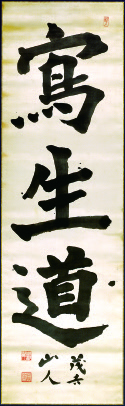 寫生道
茂吉
山人